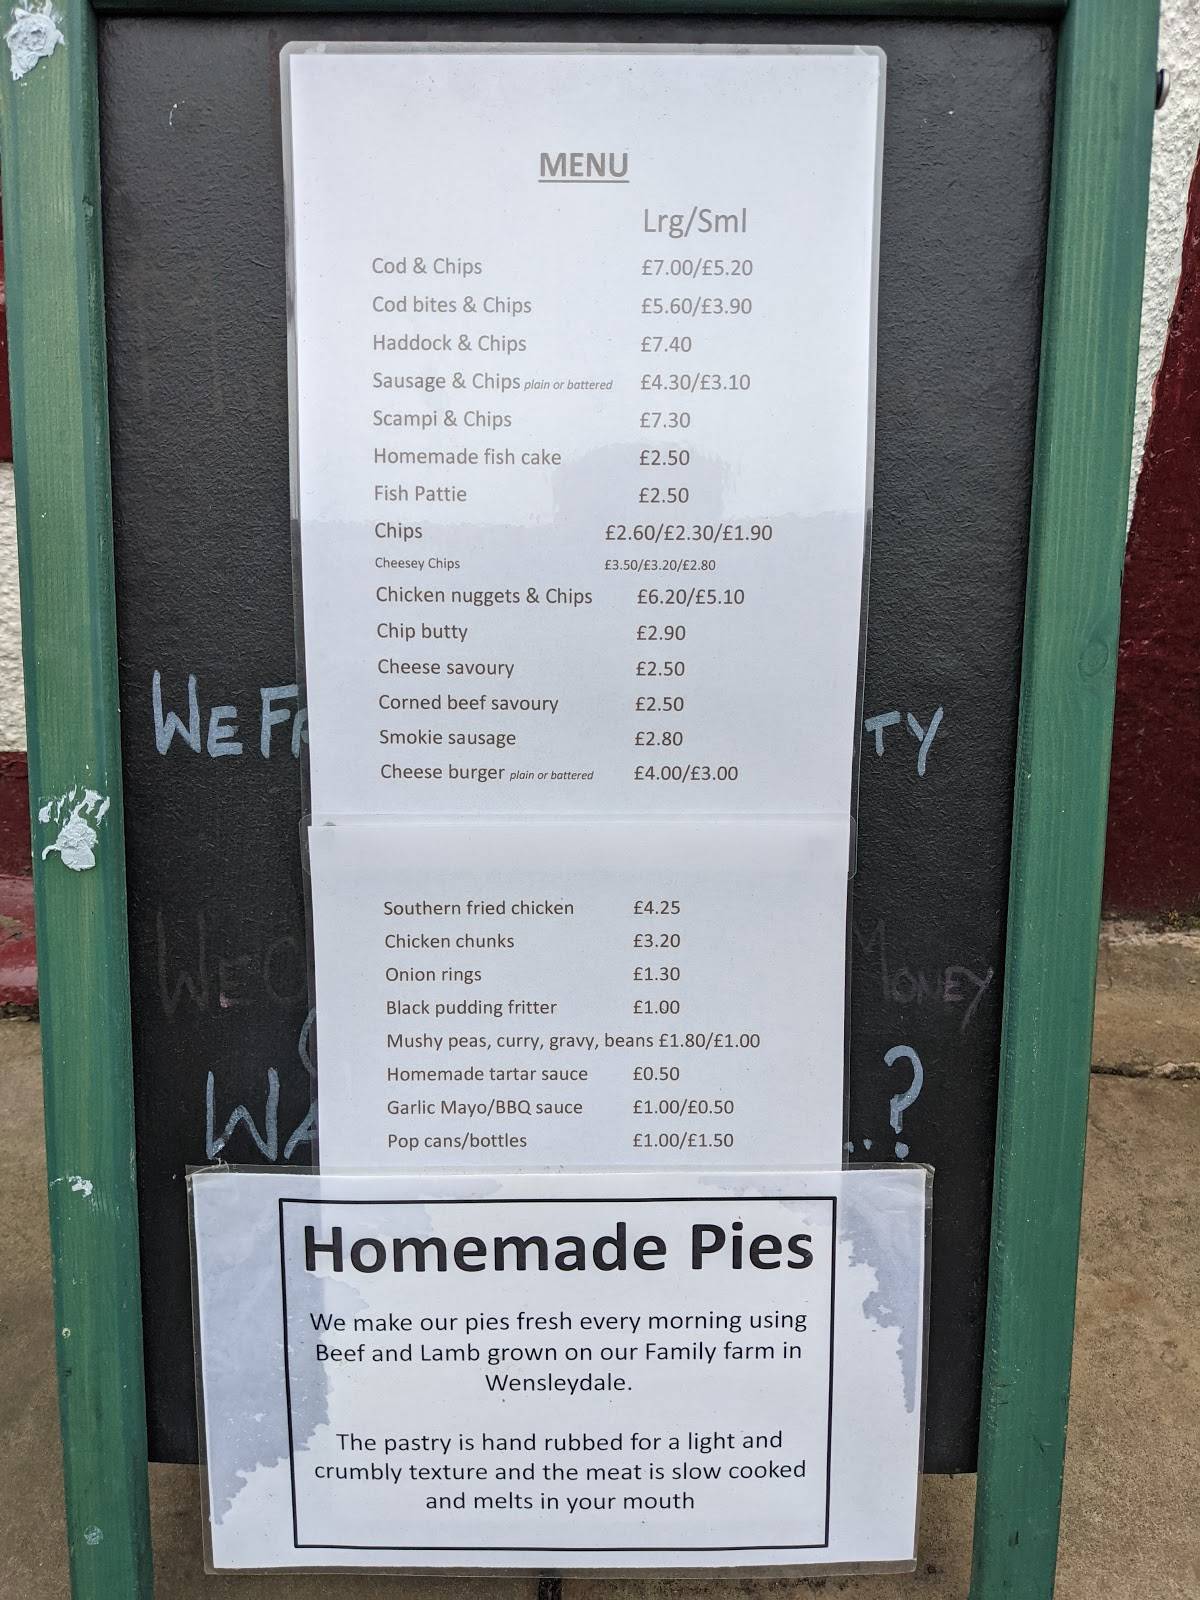 MENU
Lrg/Sml
Cod & Chips £7.00/£5.20
Cod bites & Chips £5.60/£3.90
Haddock & Chips £7.40
Sausage & Chips plain or battered £4.30/£3.10
Scampi & Chips £7.30
Homemade fish cake £2.50
Fish Pattie £2.50
Chips £2.60/£2.30/£1.90
Cheesey Chips £3.50/£3.20/£2.80
Chicken nuggets & Chips £6.20/£5.10
Chip butty £2.90
Cheese savoury £2.50
Corned beef savoury £2.50
Smokie sausage £2.80
Cheese burger plain or battered £4.00/£3.00
Southern fried chicken £4.25
Chicken chunks £3.20
Onion rings £1.30
Black pudding fritter £1.00
Mushy peas, curry, gravy, beans £1.80/£1.00
Homemade tartar sauce £0.50
Garlic Mayo/BBQ sauce £1.00/£0.50
Pop cans/bottles £1.00/£1.50
WE
WE MONEY
..?
Homemade Pies
We make our pies fresh every morning using
Beef and Lamb grown on our Family farm in
Wensleydale.
The pastry is hand rubbed for a light and
crumbly texture and the meat is slow cooked
and melts in your mouth